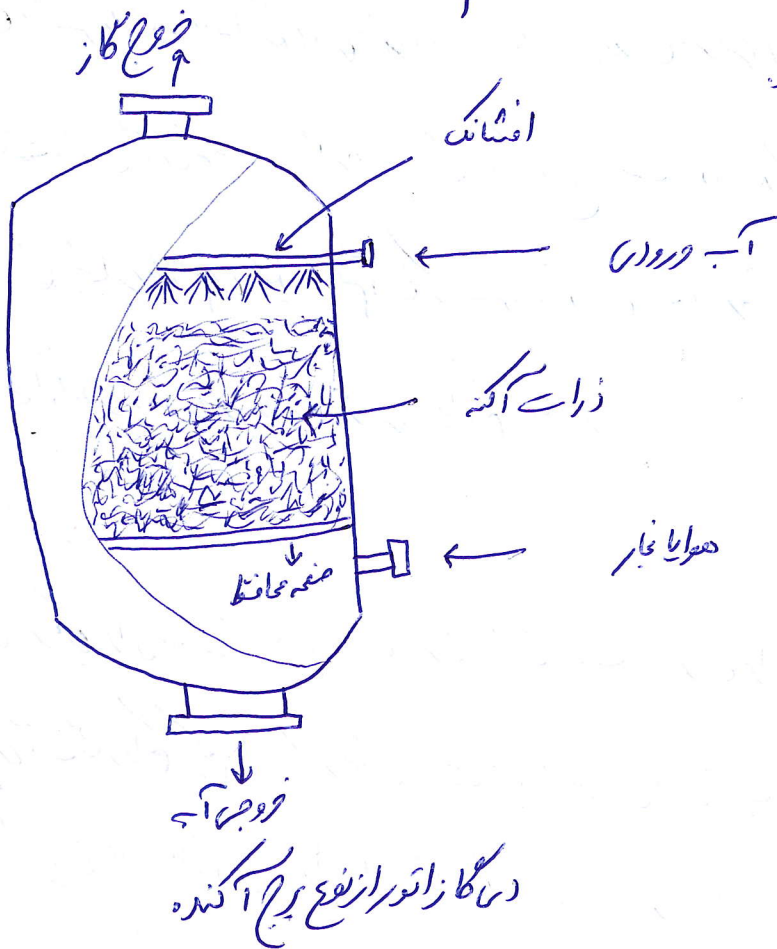 خروج گاز
افشانک
آب ورودی
ذرات آکنه
هوا یا بخار
صفحه محافظ
خروجی آب
دی گازاتور از نوع برج آکنده